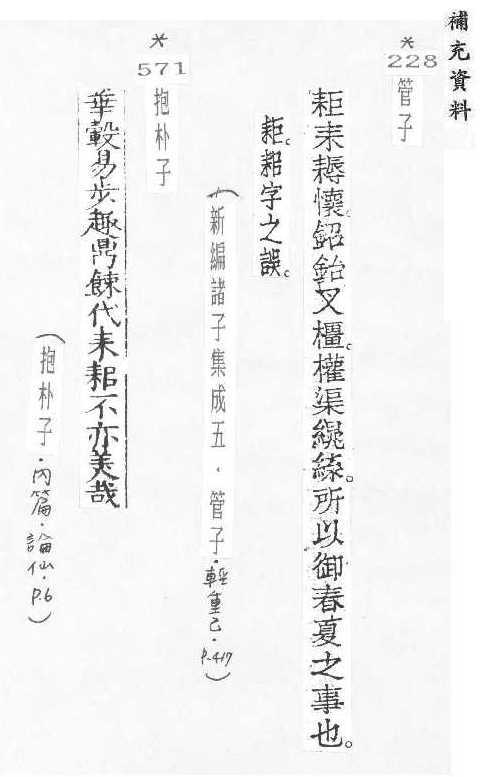 補充資料
*
228
管子
耟耒耨懷。鉊鈶叉橿。權渠繉緤。所以御春夏之事也。
耟。耜字之誤。
(新編諸子集成五．管子．輕重己．P.417)
*
571
抱朴子
華轂易步趍鼎餗代耒耜不亦美哉
(抱朴子．內篇．論仙．P.6)